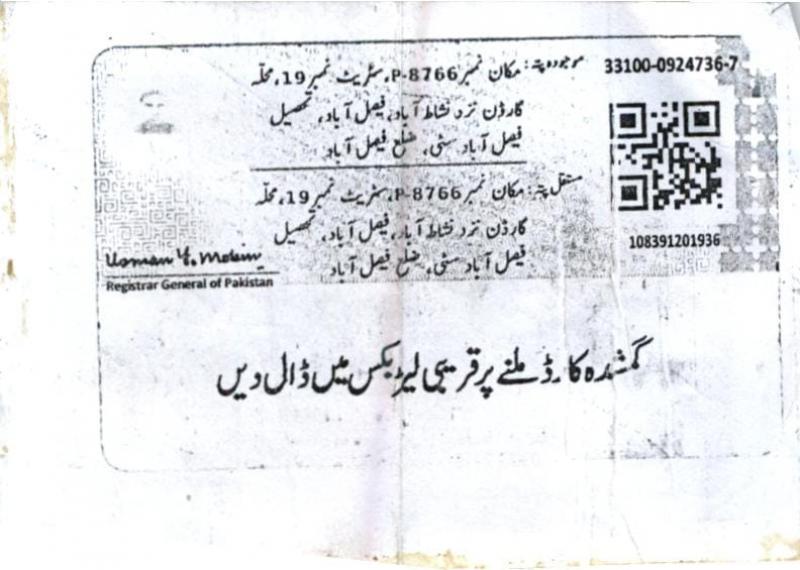 موجودہ پتہ: مکان نمبر P-8766، سٹریٹ نمبر 19، محلہ
گارڈن نزد نشاط آباد، فیصل آباد، تحصیل
فیصل آباد سٹی، ضلع فیصل آباد
33100-0924736-7
مستقل پتہ: مکان نمبر P-8766، سٹریٹ نمبر 19، محلہ
گارڈن نزد نشاط آباد، فیصل آباد، تحصیل
فیصل آباد سٹی، ضلع فیصل آباد
108391201936
Usman Y. Mobin
Registrar General of Pakistan
گمشدہ کارڈ ملنے پر قریبی لیٹر بکس میں ڈال دیں